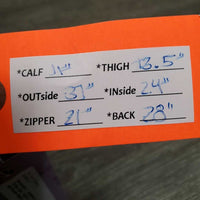 *CALF *THIGH 13.5"
*OUTside 37" *INside 24"
*ZIPPER 21" *BACK 23"